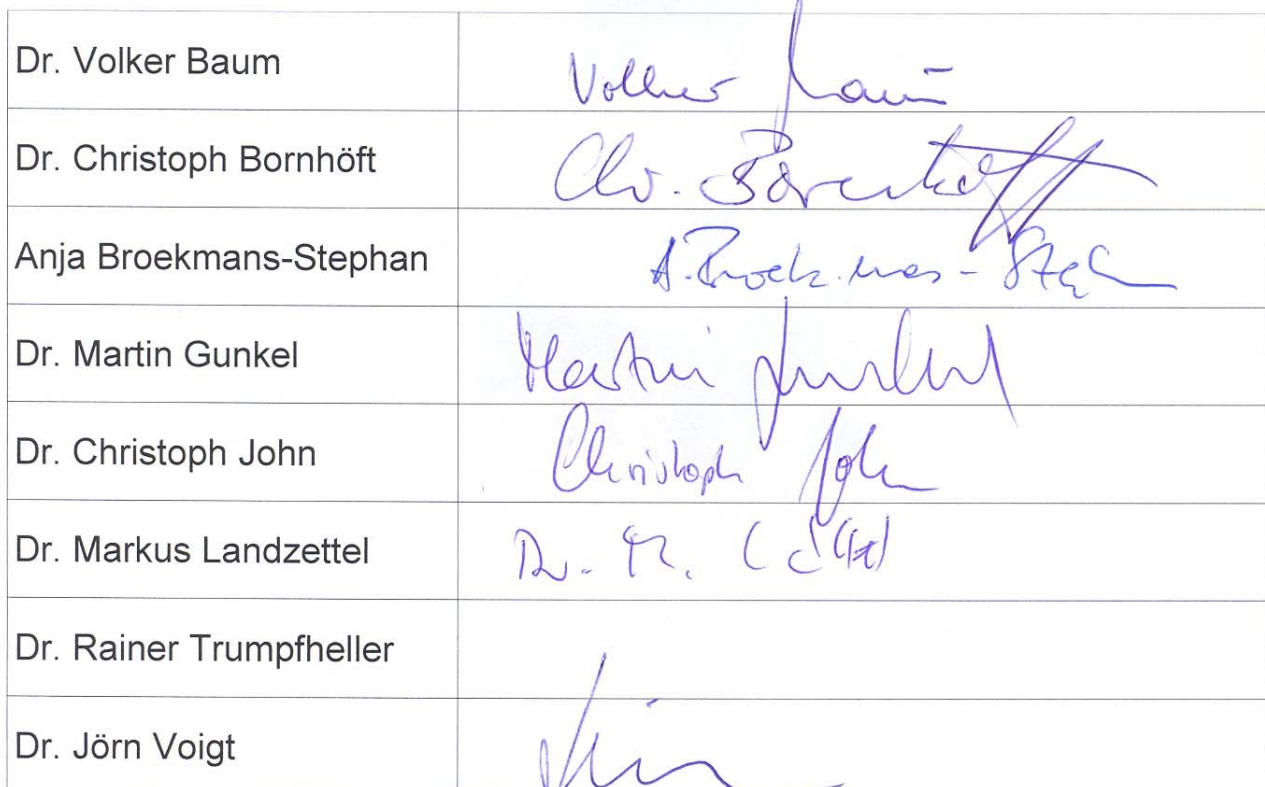 Dr. Volker Baum Volker Baum
Dr. Christoph Bornhöft Chr. Bornhöft
Anja Broekmans-Stephan A. Broekmans-Steph
Dr. Martin Gunkel Martin Gunkel
Dr. Christoph John Christoph John
Dr. Markus Landzettel Dr. M.
Dr. Rainer Trumpfheller
Dr. Jörn Voigt